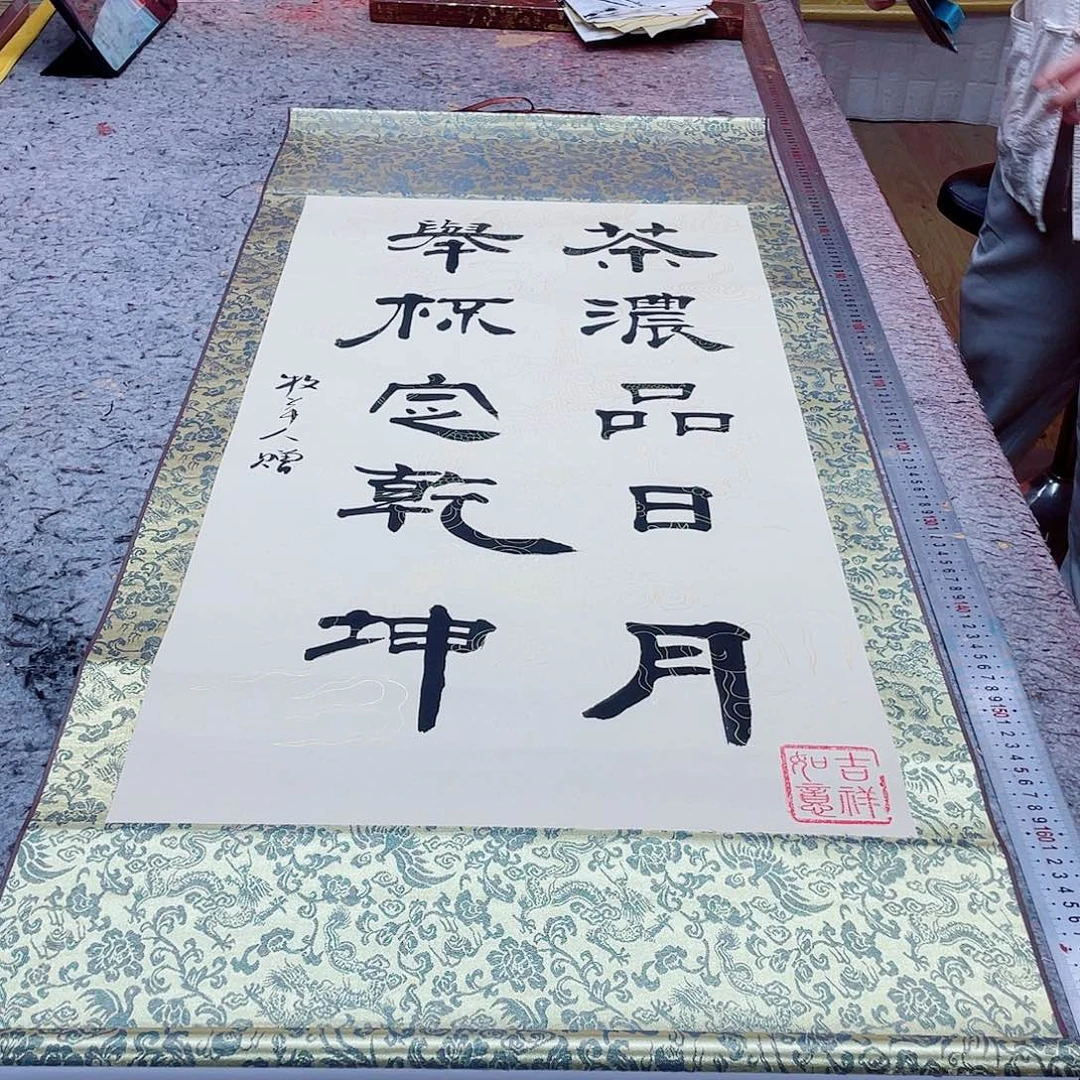 茶濃品日月
舉杯定乾坤
牧羊人赠
吉祥如意